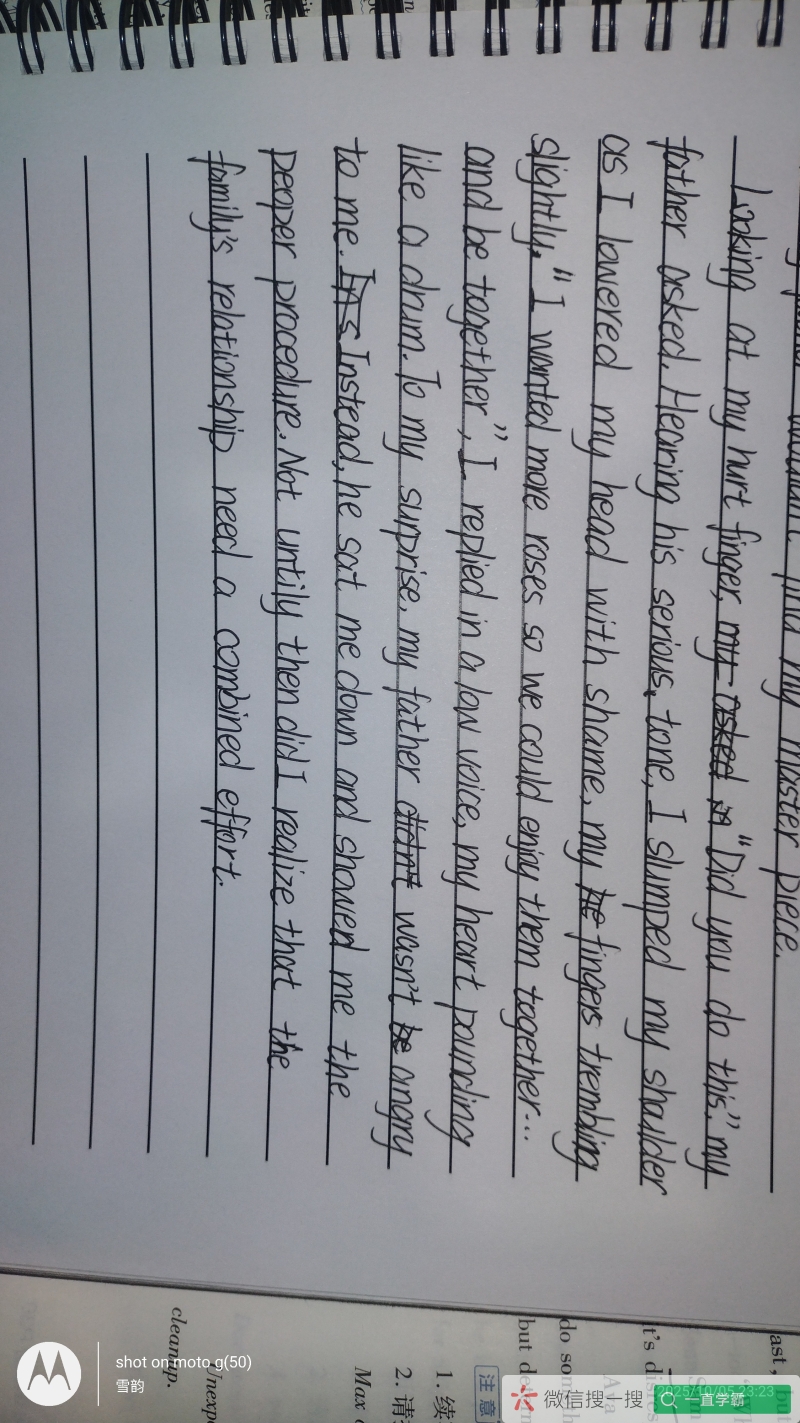 find my master piece.
Looking at my hurt finger, my asked in "Did you do this." my
father asked. Hearing his serious tone, I slumped my shoulder
as I lowered my head with shame, my he fingers trembling
slightly, "I wanted more roses so we could enjoy them together...
and be together", I replied in a low voice, my heart pounding
like a drum. To my surprise, my father didn't wasn't be angry
to me. Ins Instead, he sat me down and showed me the
peoper procedure. Not untily then did I realize that the
family's relationship need a combined effort.
ast,
t's
do som
but
注意
1. 续
2. 请
Max
Unexp
cleanup.
shot on moto g(50)
雪韵
微信搜一搜
一直学霸
2025/10/05 23:23